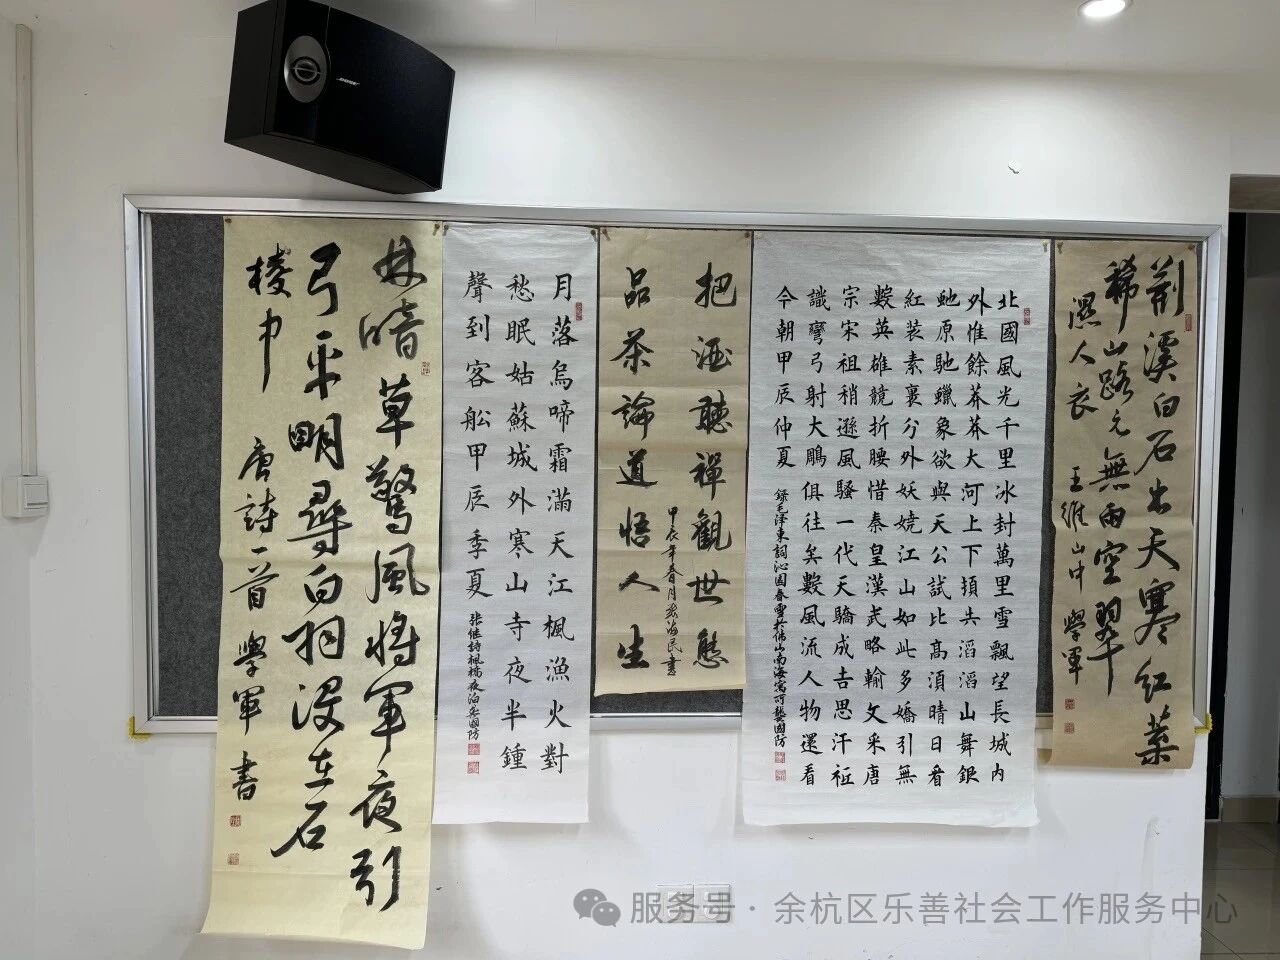 荆溪白石出天寒红葉
稀山路元無雨空翠
濕人衣 王維山中 學軍
北國風光千里冰封萬里雪飄望長城内
外惟餘莽莽大河上下頓失滔滔山舞銀
虵原馳蠟象欲與天公試比高須晴日看
紅装素裹分外妖嬈江山如此多嬌引無
數英雄競折腰惜秦皇漢武略輸文采唐
宗宋祖稍遜風騷一代天驕成吉思汗祗
識彎弓射大鵰俱往矣數風流人物還看
今朝甲辰仲夏 録毛泽東詞沁園春雪於佛山南海寓所國防
把酒聽禪觀世態
品茶論道悟人生
甲辰年春月海民書
月落烏啼霜滿天江楓漁火對
愁眠姑蘇城外寒山寺夜半鍾
聲到客舩甲辰季夏 張继詩楓橋夜泊國防
林暗草驚風將軍夜引
弓平明尋白羽没在石
棱中 唐詩一首 學軍書
BOSE
服务号 · 余杭区乐善社会工作服务中心